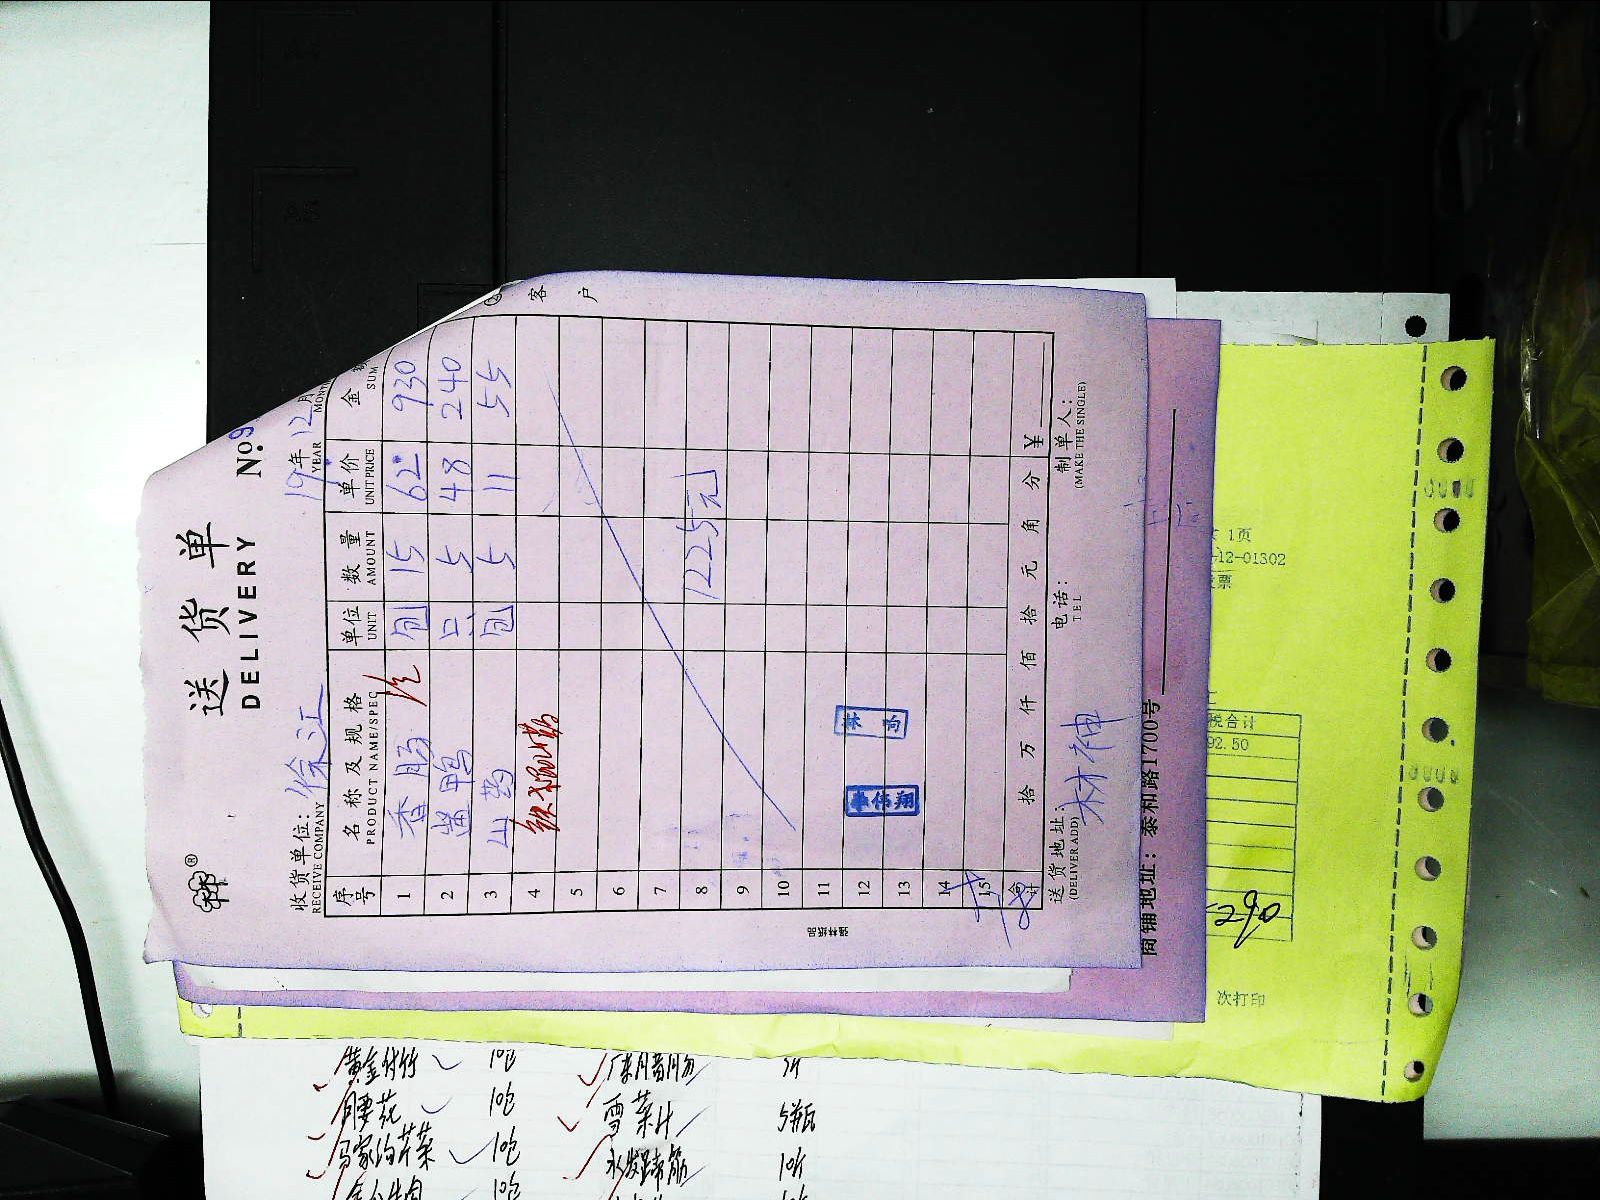 送货单
DELIVERY №9
收货单位：徐江 19年12月
RECEIVE COMPANY YEAR MONTH
序号 名称及规格 单位 数量 单价 金额
PRODUCT NAME/SPEC UNIT AMOUNT UNIT PRICE SUM
1 香肠 包 15 62 930
2 酱鸭 只 5 48 240
3 山药 包 5 11 55
4
5
6
7
8 1225元
9
10
11
12
13
14
15
合计 拾 万 仟 佰 拾 元 角 分 ¥
送货地址： 电话： 制单人：
(DELIVER ADD) TEL (MAKE THE SINGLE)
林神
客户
强林纸品
林尚
伟翔
商铺地址：泰和路1700号
1页
-12-01302
票
税合计
92.50
290
次打印
黄金付竹 10包 广东月昔月匆 5斤
月要花 10包 雪菜汁 5瓶
马家的芹菜 10包 水发蹄筋 10斤
10包